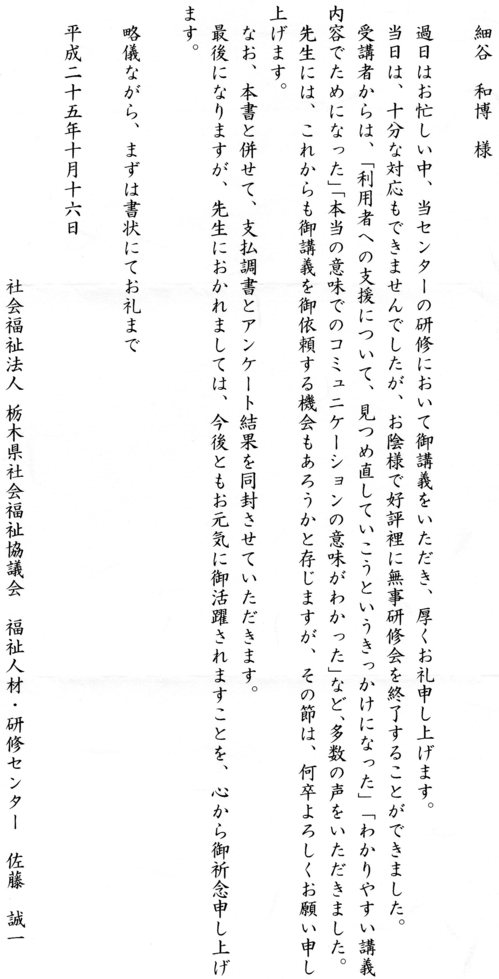 細谷 和博 様
過日はお忙しい中、当センターの研修において御講義をいただき、厚くお礼申し上げます。
当日は、十分な対応もできませんでしたが、お陰様で好評裡に無事研修会を終了することができました。
受講者からは、「利用者への支援について、見つめ直していこうというきっかけになった」「わかりやすい講義
内容でためになった」「本当の意味でのコミュニケーションの意味がわかった」など、多数の声をいただきました。
先生には、これからも御講義を御依頼する機会もあろうかと存じますが、その節は、何卒よろしくお願い申し
上げます。
なお、本書と併せて、支払調書とアンケート結果を同封させていただきます。
最後になりますが、先生におかれましては、今後ともお元気に御活躍されますことを、心から御祈念申し上げ
ます。
略儀ながら、まずは書状にてお礼まで
平成二十五年十月十六日
社会福祉法人 栃木県社会福祉協議会 福祉人材・研修センター 佐藤 誠一